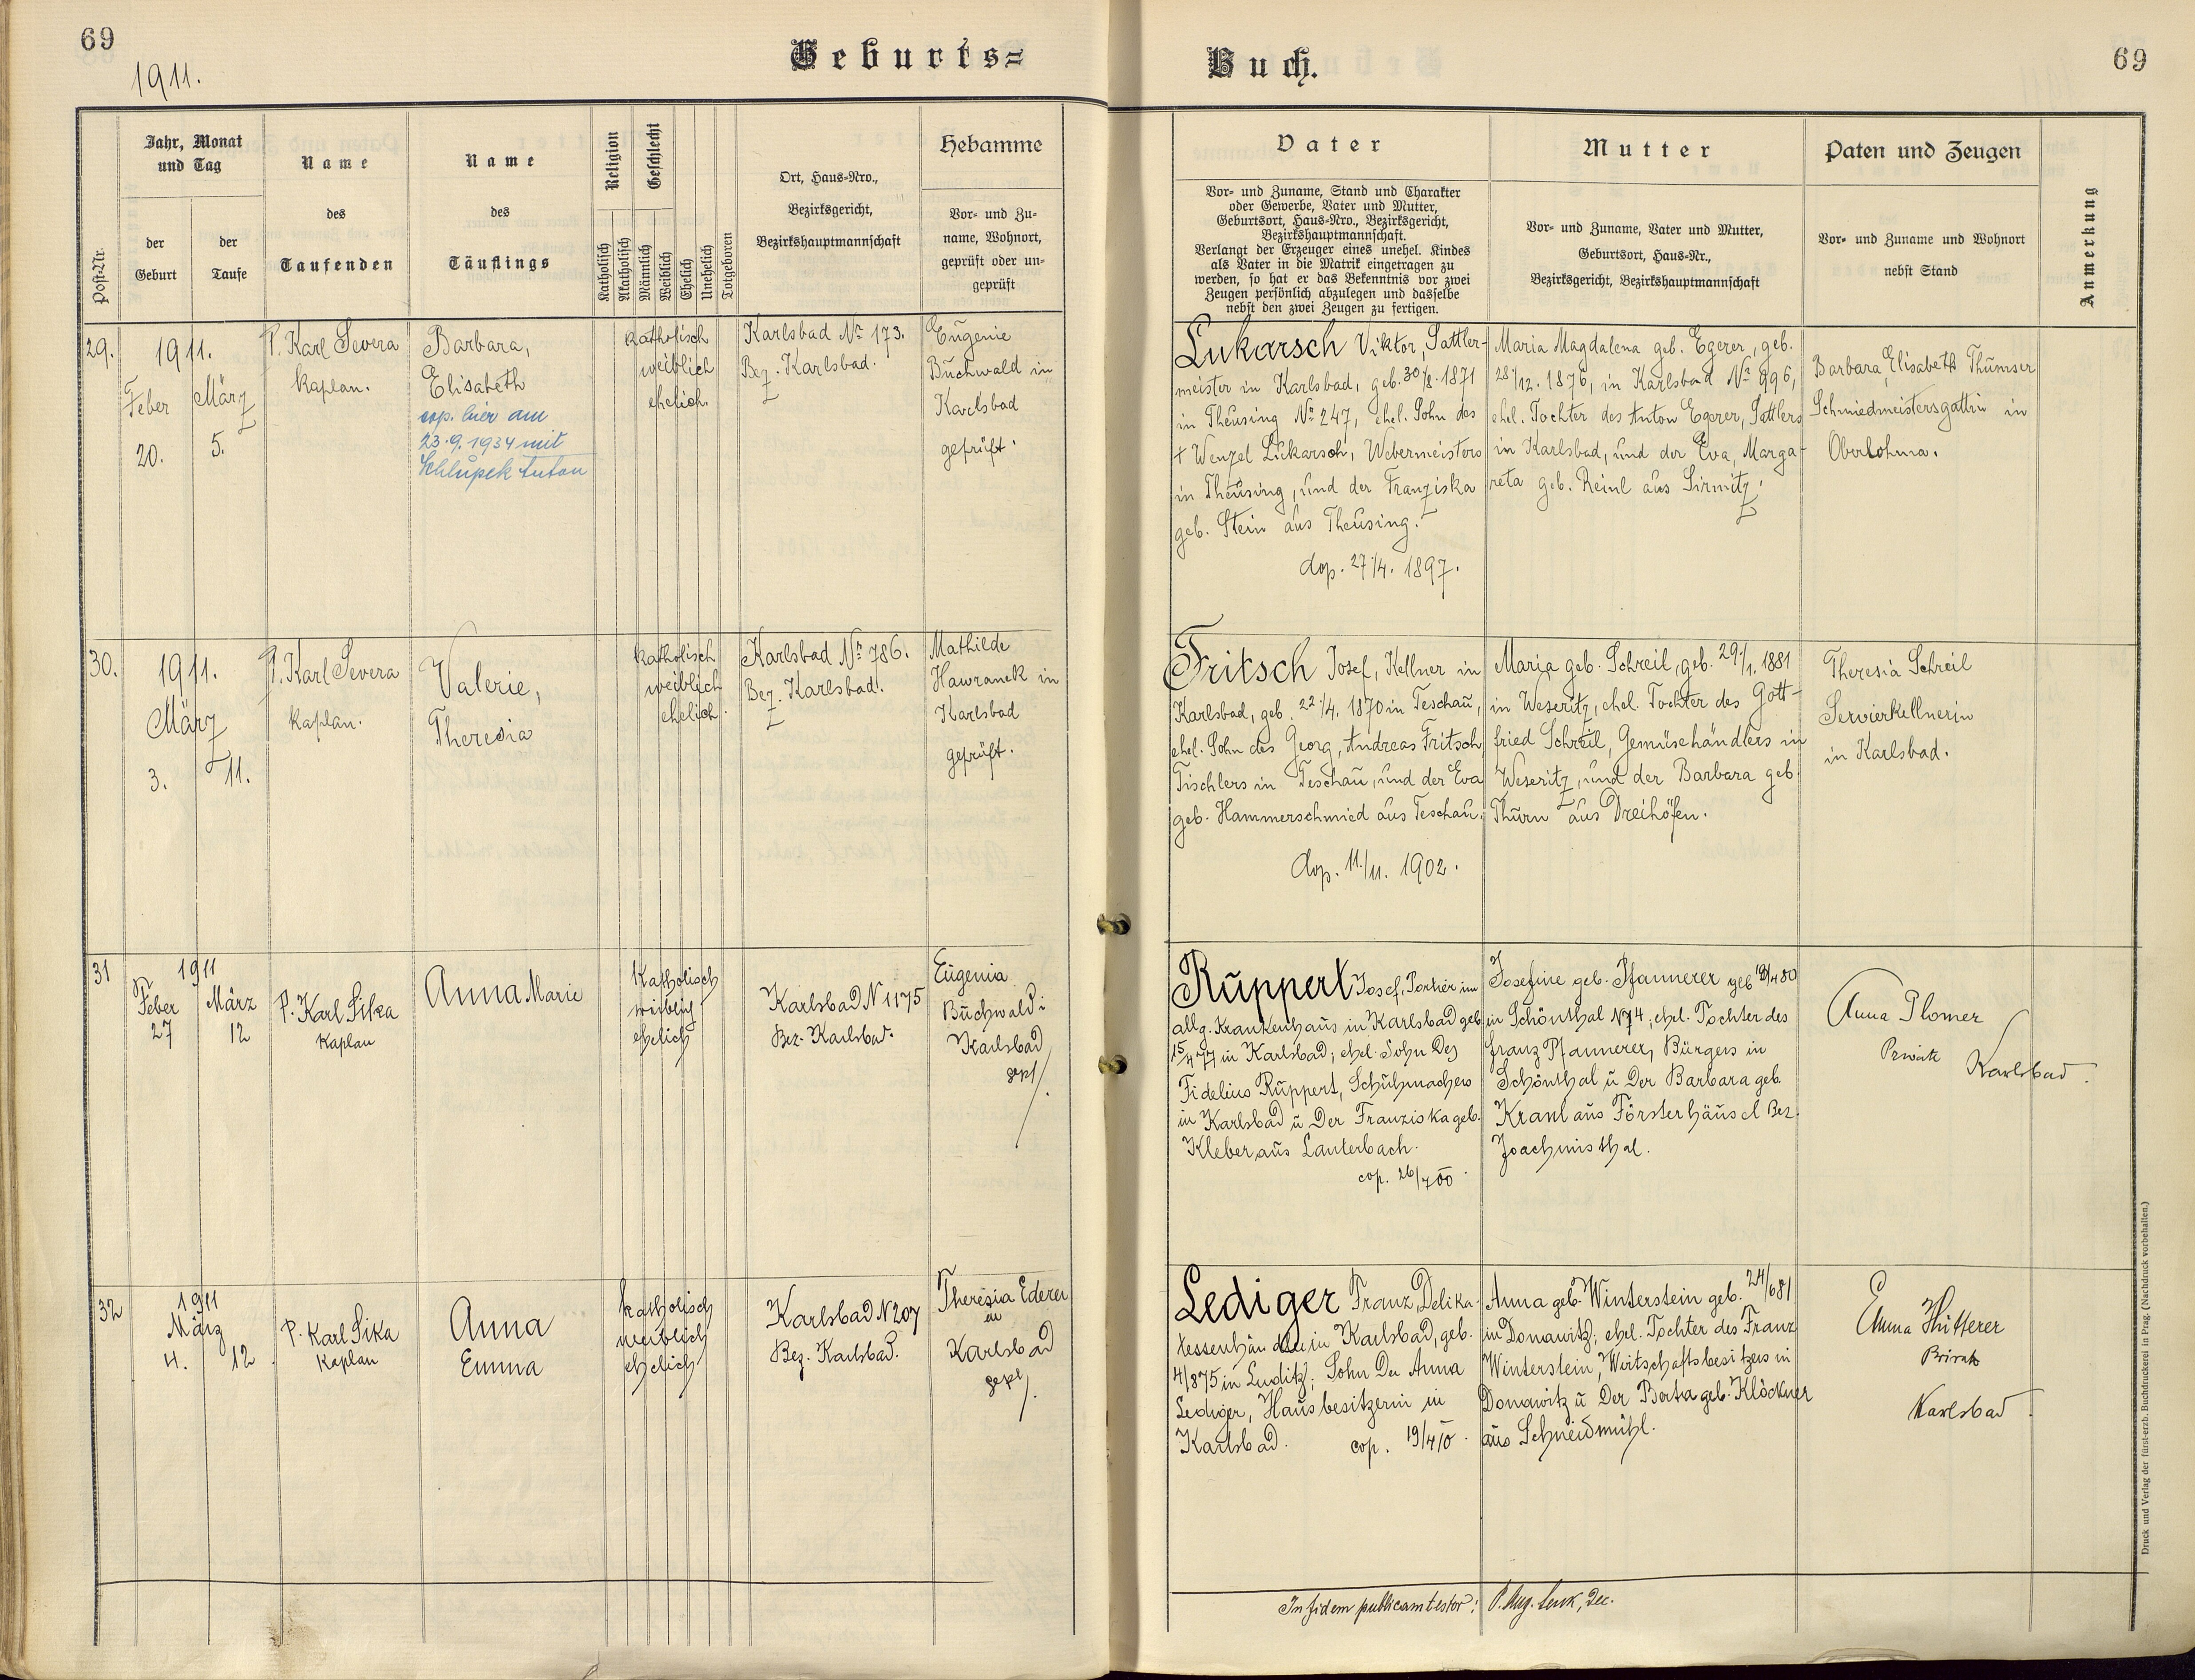 69
1911.
Geburts=
Buch.
69
Post-Nr.
Jahr, Monat
und Tag
der
Geburt
der
Taufe
Name
des
Taufenden
Name
des
Täuflings
Religion
Katholisch
Akatholisch
Geschlecht
Männlich
Weiblich
Ehelich
Unehelich
Totgeboren
Ort, Haus-Nro.,
Bezirksgericht,
Bezirkshauptmannschaft
Hebamme
Vor- und Zu-
name, Wohnort,
geprüft oder un-
geprüft
Vater
Vor- und Zuname, Stand und Charakter
oder Gewerbe, Vater und Mutter,
Geburtsort, Haus-Nro., Bezirksgericht,
Bezirkshauptmannschaft.
Verlangt der Erzeuger eines unehel. Kindes
als Vater in die Matrik eingetragen zu
werden, so hat er das Bekenntnis vor zwei
Zeugen persönlich abzulegen und dasselbe
nebst den zwei Zeugen zu fertigen.
Mutter
Vor- und Zuname, Vater und Mutter,
Geburtsort, Haus-Nr.,
Bezirksgericht, Bezirkshauptmannschaft
Paten und Zeugen
Vor- und Zuname und Wohnort
nebst Stand
Anmerkung
29.
1911.
Feber
20.
März
5.
P. Karl Severa
Kaplan.
Barbara,
Elisabeth
cop. hier am
23.9.1934 mit
Schlupek Anton
katholisch
weiblich
ehelich.
Karlsbad Nr. 173.
Bez. Karlsbad.
Eugenie
Buchwald in
Karlsbad
geprüft.
Lukarsch Viktor, Sattler-
meister in Karlsbad, geb. 30/8. 1871
in Theusing Nr. 247, ehel. Sohn des
† Wenzel Lukarsch, Webermeisters
in Theusing, und der Franziska
geb. Stein aus Theusing.
cop. 27/4. 1897.
Maria Magdalena geb. Egerer, geb.
28/12. 1876, in Karlsbad Nr. 996,
ehel. Tochter des Anton Egerer, Sattlers
in Karlsbad, und der Eva, Marga-
reta geb. Reinl aus Sirmitz.
Barbara, Elisabeth Thumser
Schmiedmeistersgattin in
Oberlohma.
30.
1911.
März
3.
11.
P. Karl Severa
Kaplan.
Valerie,
Theresia
katholisch
weiblich
ehelich.
Karlsbad Nr. 786.
Bez. Karlsbad.
Mathilde
Hawranek in
Karlsbad
geprüft.
Fritsch Josef, Kellner in
Karlsbad, geb. 22/4. 1870 in Teschau,
ehel. Sohn des Georg, Andreas Fritsch
Tischlers in Teschau, und der Eva
geb. Hammerschmied aus Teschau.
cop. 11./11. 1902.
Maria geb. Schreil, geb. 29./1. 1881
in Weseritz, ehel. Tochter des Gott-
fried Schreil, Gemüsehändlers in
Weseritz, und der Barbara geb.
Thurn aus Dreihöfen.
Theresia Schreil
Servierkellnerin
in Karlsbad.
31
1911
Feber
27
März
12
P. Karl Sika
Kaplan
Anna Marie
Katholisch
weiblich
ehelich
Karlsbad N 1175
Bez. Karlsbad.
Eugenia
Buchwald i
Karlsbad
gepr/.
Ruppert Josef, Portier im
allg. Krankenhaus in Karlsbad geb
15/4 77 in Karlsbad; ehel. Sohn Des
Fidelius Ruppert, Schuhmachers
in Karlsbad u Der Franziska geb.
Kleber aus Lauterbach.
cop. 26/7 00.
Josefine geb. Pfannerer geb 19/4 80
in Schönthal N 74; ehel. Tochter des
Franz Pfannerer, Bürgers in
Schönthal u Der Barbara geb.
Kraul aus Försterhäusl Bez.
Joachimsthal.
Anna Plomer
Private
Karlsbad.
32
1911
März
4.
12.
P. Karl Sika
Kaplan
Anna
Emma
katholisch
weiblich
ehelich
Karlsbad N 207
Bez. Karlsbad.
Theresia Ederer
in
Karlsbad
gepr/.
Lediger Franz, Delika-
tessenhändler in Karlsbad, geb.
4/8 75 in Luditz; Sohn Der Anna
Lediger, Hausbesitzerin in
Karlsbad.
cop. 19/4 10.
Anna geb. Winterstein geb. 24/6 81
in Donawitz; ehel. Tochter des Franz
Winterstein, Wirtschaftsbesitzers in
Donawitz u Der Berta geb. Klöckner
aus Schneidmühl.
Emma Hütterer
Private
Karlsbad.
In fidem publicam testor: P. Aug. Lenk, Dec.
Druck und Verlag der fürst-erzb. Buchdruckerei in Prag. (Nachdruck vorbehalten.)